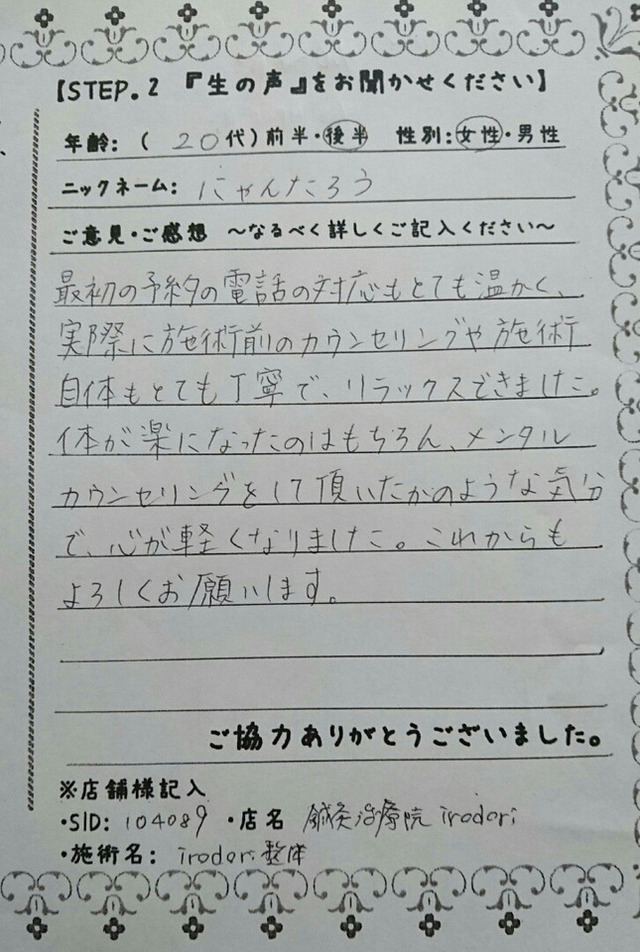 【STEP.2 『生の声』をお聞かせください】
年齢：（ 20代）前半・後半 性別：女性・男性
ニックネーム： にゃんたろう
ご意見・ご感想 ～なるべく詳しくご記入ください～
最初の予約の電話の対応もとても温かく、
実際に施術前のカウンセリングや施術
自体もとても丁寧で、リラックスできました。
体が楽になったのはもちろん、メンタル
カウンセリングをして頂いたかのような気分
で、心が軽くなりました。これからも
よろしくお願いします。
ご協力ありがとうございました。
※店舗様記入
・SID: 104089 ・店名 鍼灸治療院 irodori
・施術名： irodori整体